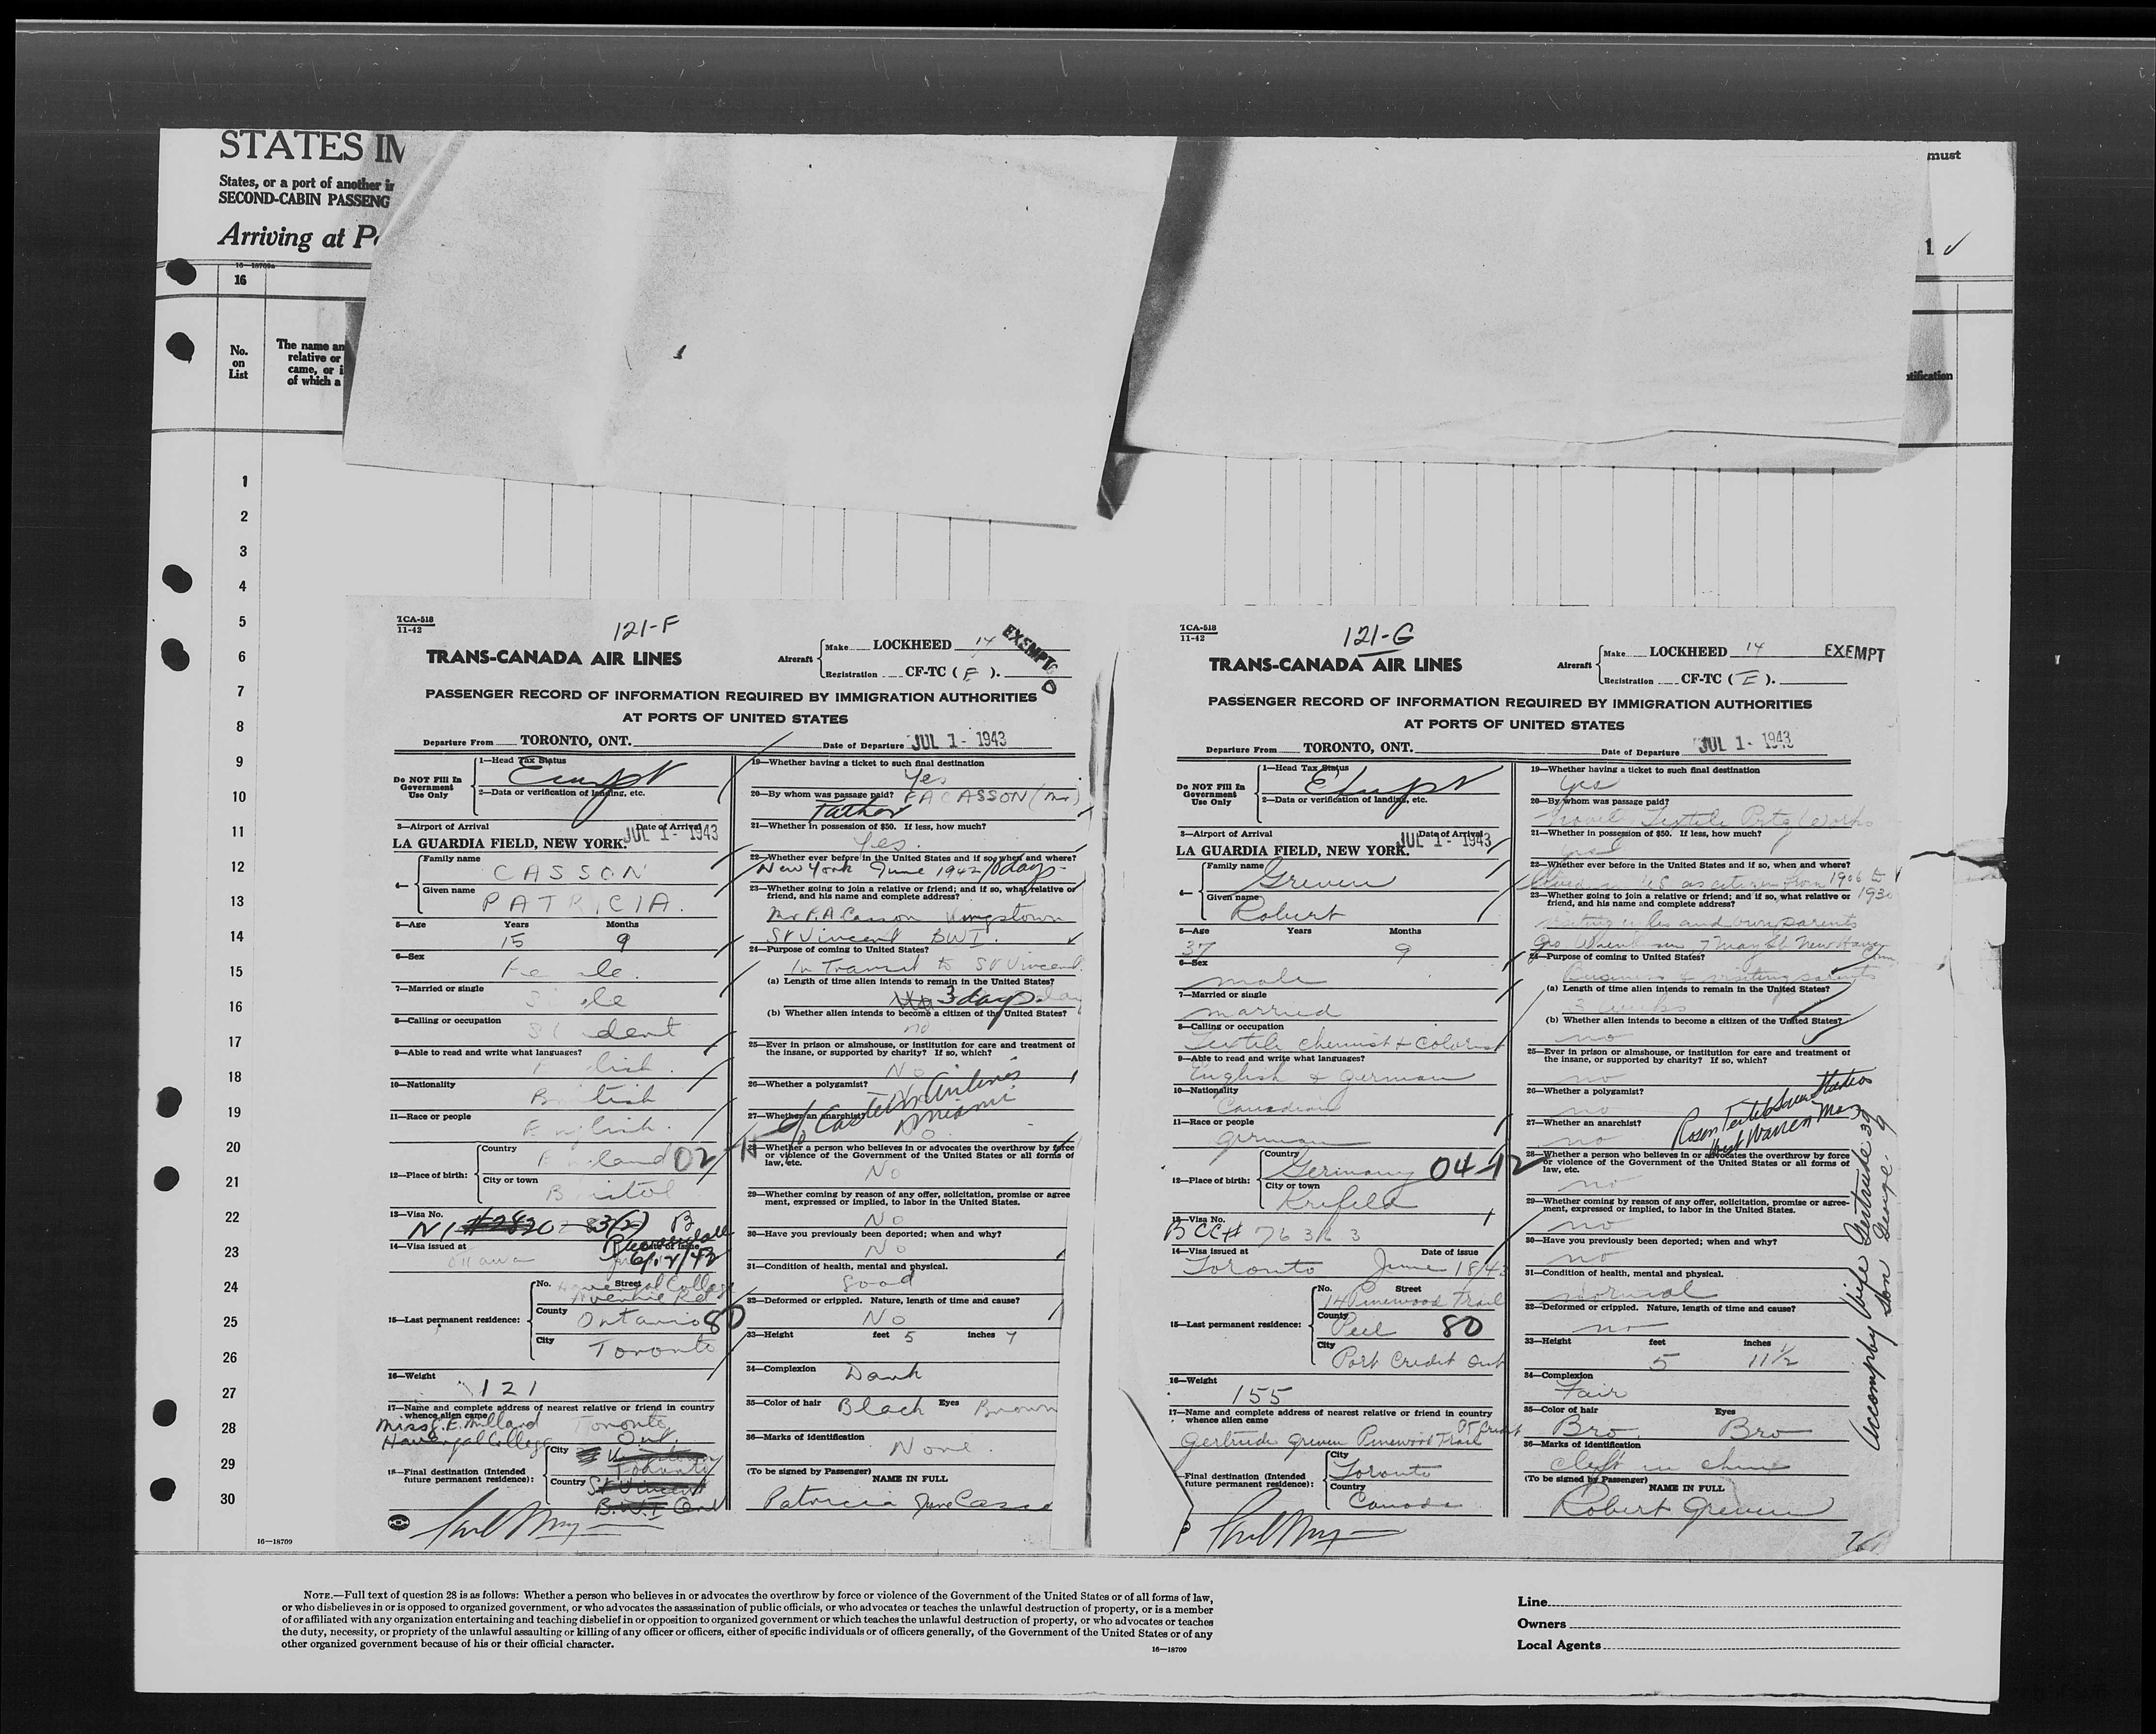 STATES IM
States, or a port of another in
SECOND-CABIN PASSENG
Arriving at Po
must
1 ✓
16
No.
on
List
The name an
relative or
came, or i
of which a
ntification
1
2
3
4
5
6
7
8
9
10
11
12
13
14
15
16
17
18
19
20
21
22
23
24
25
26
27
28
29
30
16—18709
TCA-518
11-42
121-F
TRANS-CANADA AIR LINES
Aircraft
Make LOCKHEED 14
Registration CF-TC ( F ).
EXEMPT
PASSENGER RECORD OF INFORMATION REQUIRED BY IMMIGRATION AUTHORITIES
AT PORTS OF UNITED STATES
Departure From TORONTO, ONT.
Date of Departure JUL 1 - 1943
Do NOT Fill In
Government
Use Only
1—Head Tax Status
Exempt
2—Data or verification of landing, etc.
3—Airport of Arrival
Date of Arrival
LA GUARDIA FIELD, NEW YORK. JUL 1 - 1943
4—
Family name
CASSON
Given name
PATRICIA.
5—Age Years Months
15 9
6—Sex
Fe le.
7—Married or single
S le
8—Calling or occupation
St dent
9—Able to read and write what languages?
lish.
10—Nationality
B tish
11—Race or people
English.
12—Place of birth:
Country
E land 02-15
City or town
B istol
13—Visa No.
14—Visa issued at
Ottawa
Date of issue
15—Last permanent residence:
No. Street
Havergal College
Avenue Rd
County
Ontario 80
City
Toronto
16—Weight
121
17—Name and complete address of nearest relative or friend in country
whence alien came
Miss G. E. Millard Toronto
Havergal College Ont.
18—Final destination (Intended
future permanent residence):
City
Toronto
Country
St Vincent
B.W.I. Ont
19—Whether having a ticket to such final destination
Yes
20—By whom was passage paid? F A CASSON (Mr)
Father
21—Whether in possession of $50. If less, how much?
Yes.
22—Whether ever before in the United States and if so, when and where?
New York June 1942 10 days
23—Whether going to join a relative or friend; and if so, what relative or
friend, and his name and complete address?
Mr F.A. Casson Kingstown
St Vincent BWI.
24—Purpose of coming to United States?
In Transit to St Vincent
(a) Length of time alien intends to remain in the United States?
3 days
(b) Whether alien intends to become a citizen of the United States?
no
25—Ever in prison or almshouse, or institution for care and treatment of
the insane, or supported by charity? If so, which?
No
26—Whether a polygamist?
c/o Eastern Airlines
Miami
27—Whether an anarchist?
28—Whether a person who believes in or advocates the overthrow by force
or violence of the Government of the United States or all forms of
law, etc.
No
29—Whether coming by reason of any offer, solicitation, promise or agree
ment, expressed or implied, to labor in the United States.
No
30—Have you previously been deported; when and why?
No
31—Condition of health, mental and physical.
Good
32—Deformed or crippled. Nature, length of time and cause?
No
33—Height feet 5 inches 7
34—Complexion
Dark
35—Color of hair Black Eyes Brown
36—Marks of identification
None.
(To be signed by Passenger)
NAME IN FULL
Patricia June Casson
TCA-518
11-42
121-G
TRANS-CANADA AIR LINES
Aircraft
Make LOCKHEED 14
Registration CF-TC ( I ).
EXEMPT
PASSENGER RECORD OF INFORMATION REQUIRED BY IMMIGRATION AUTHORITIES
AT PORTS OF UNITED STATES
Departure From TORONTO, ONT.
Date of Departure JUL 1 - 1943
Do NOT Fill In
Government
Use Only
1—Head Tax Status
Exempt
2—Data or verification of landing, etc.
3—Airport of Arrival
Date of Arrival
LA GUARDIA FIELD, NEW YORK. JUL 1 - 1943
4—
Family name
Greven
Given name
Robert
5—Age Years Months
37 9
6—Sex
male
7—Married or single
married
8—Calling or occupation
Textile chemist & colorist
9—Able to read and write what languages?
English & german
10—Nationality
Canadian
11—Race or people
german
12—Place of birth:
Country
Germany 04-12
City or town
Krefeld
13—Visa No.
BCC# 76363
14—Visa issued at
Toronto
Date of issue
June 18/43
15—Last permanent residence:
No. Street
14 Pinewood Trail
County
Peel 80
City
Port Credit Ont
16—Weight
155
17—Name and complete address of nearest relative or friend in country
whence alien came
Pt Credit
Gertrude Greven Pinewood Trail
Final destination (Intended
future permanent residence):
City
Toronto
Country
Canada
19—Whether having a ticket to such final destination
yes
20—By whom was passage paid?
Textile Ptg Works
21—Whether in possession of $50. If less, how much?
yes
22—Whether ever before in the United States and if so, when and where?
as citizen from 1906 to
1930
23—Whether going to join a relative or friend; and if so, what relative or
friend, and his name and complete address?
and own parents
7 May St New Haven
Conn
24—Purpose of coming to United States?
Business & visiting parents
(a) Length of time alien intends to remain in the United States?
3 weeks
(b) Whether alien intends to become a citizen of the United States?
no
25—Ever in prison or almshouse, or institution for care and treatment of
the insane, or supported by charity? If so, which?
no
26—Whether a polygamist?
no
27—Whether an anarchist?
no
West Warren Mass
28—Whether a person who believes in or advocates the overthrow by force
or violence of the Government of the United States or all forms of
law, etc.
no
29—Whether coming by reason of any offer, solicitation, promise or agree-
ment, expressed or implied, to labor in the United States.
no
30—Have you previously been deported; when and why?
no
31—Condition of health, mental and physical.
normal
32—Deformed or crippled. Nature, length of time and cause?
no
33—Height feet inches
5 11½
34—Complexion
Fair
35—Color of hair Eyes
Bro. Bro
36—Marks of identification
cleft in chin
(To be signed by Passenger)
NAME IN FULL
Robert Greven
Accompby Wife Gertrude 39
Son George. 9
NOTE.—Full text of question 28 is as follows: Whether a person who believes in or advocates the overthrow by force or violence of the Government of the United States or of all forms of law,
or who disbelieves in or is opposed to organized government, or who advocates the assassination of public officials, or who advocates or teaches the unlawful destruction of property, or is a member
of or affiliated with any organization entertaining and teaching disbelief in or opposition to organized government or which teaches the unlawful destruction of property, or who advocates or teaches
the duty, necessity, or propriety of the unlawful assaulting or killing of any officer or officers, either of specific individuals or of officers generally, of the Government of the United States or of any
other organized government because of his or their official character.
16—18709
Line
Owners
Local Agents